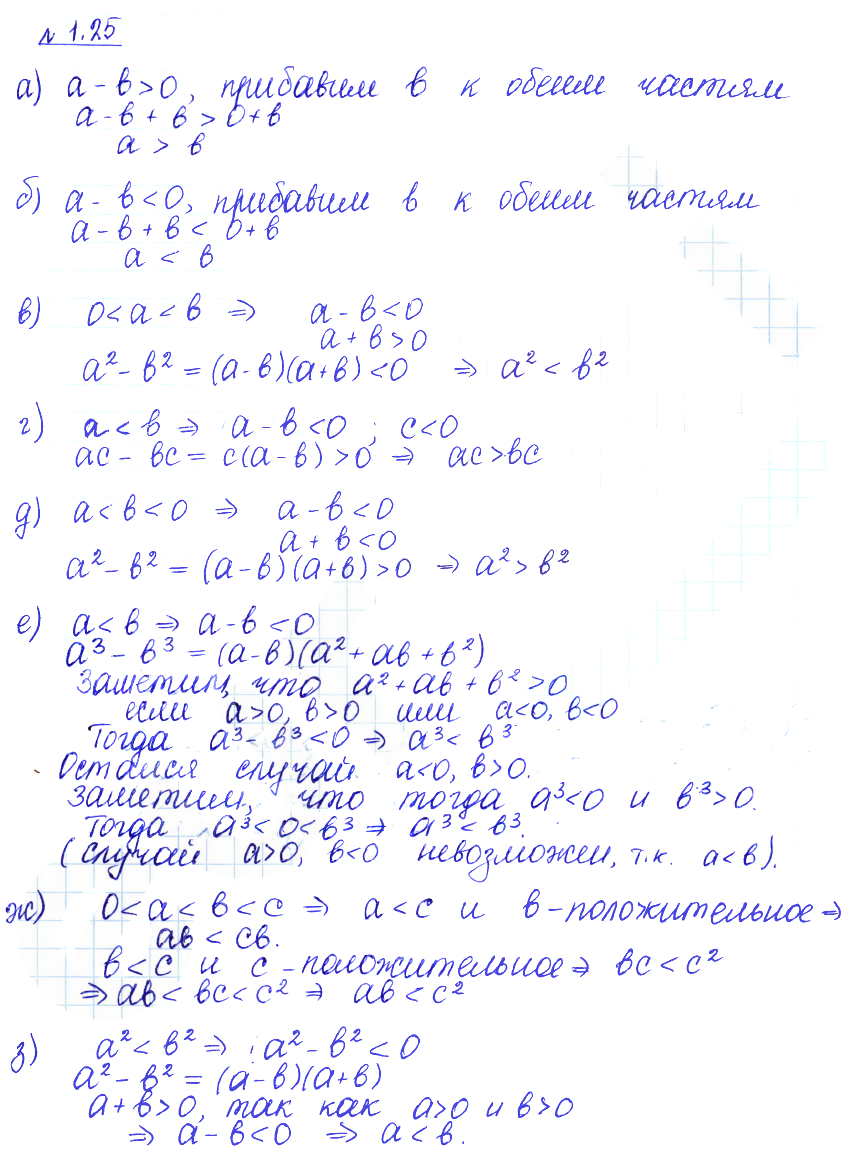 № 1.25
а) a - b > 0, прибавим b к обеим частям
a - b + b > 0 + b
a > b
б) a - b < 0, прибавим b к обеим частям
a - b + b < 0 + b
a < b
в) 0 < a < b ⇒ a - b < 0
a + b > 0
a² - b² = (a - b)(a + b) < 0 ⇒ a² < b²
г) a < b ⇒ a - b < 0 ; c < 0
ac - bc = c(a - b) > 0 ⇒ ac > bc
д) a < b < 0 ⇒ a - b < 0
a + b < 0
a² - b² = (a - b)(a + b) > 0 ⇒ a² > b²
е) a < b ⇒ a - b < 0
a³ - b³ = (a - b)(a² + ab + b²)
Заметим, что a² + ab + b² > 0
если a > 0, b > 0 или a < 0, b < 0
Тогда a³ - b³ < 0 ⇒ a³ < b³
Остался случай a < 0, b > 0.
Заметим, что тогда a³ < 0 и b³ > 0.
Тогда a³ < 0 < b³ ⇒ a³ < b³.
(случай a > 0, b < 0 невозможен, т.к. a < b).
ж) 0 < a < b < c ⇒ a < c и b - положительное ⇒
ab < cb.
b < c и c - положительное ⇒ bc < c²
⇒ ab < bc < c² ⇒ ab < c²
з) a² < b² ⇒ a² - b² < 0
a² - b² = (a - b)(a + b)
a + b > 0, так как a > 0 и b > 0
⇒ a - b < 0 ⇒ a < b.